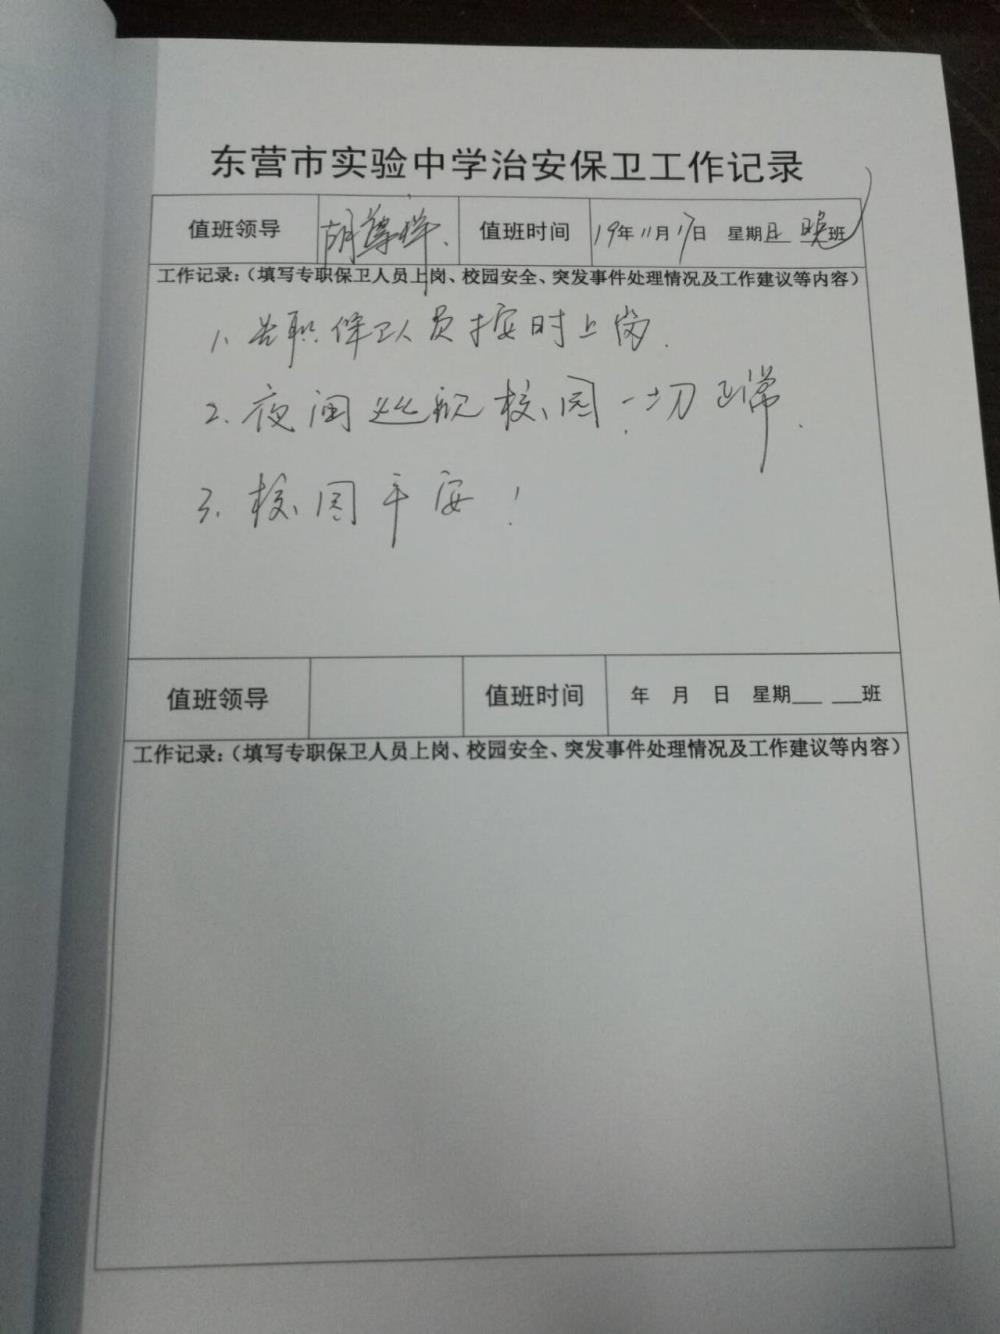 东营市实验中学治安保卫工作记录
值班领导 胡尊祥 值班时间 19年11月17日 星期日 晚班
工作记录：（填写专职保卫人员上岗、校园安全、突发事件处理情况及工作建议等内容）
1、专职保卫人员按时上岗.
2. 夜间巡视校园，一切正常.
3. 校园平安！
值班领导 值班时间 年 月 日 星期___ ___班
工作记录：（填写专职保卫人员上岗、校园安全、突发事件处理情况及工作建议等内容）